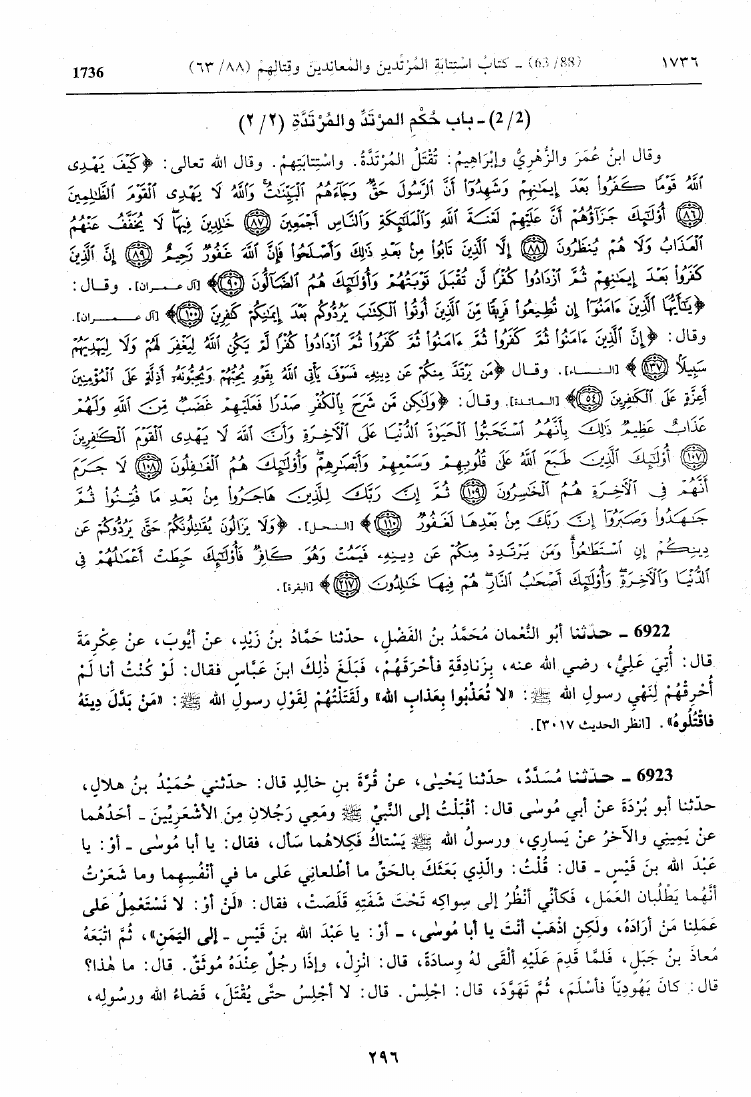 ١٧٣٦ (63/88) ـ كتابُ اسْتِتابَةِ المُرْتَدِّينَ والمُعانِدِينَ وقِتالِهِمْ (٦٣/٨٨) 1736
(2/2) ـ باب حُكْمِ المرْتَدِّ والمُرْتَدَّةِ (٢/٢)
وقال ابنُ عُمَرَ والزُّهْرِيُّ وإبْراهِيمُ: تُقْتَلُ المُرْتَدَّةُ. واسْتِتابَتِهِمْ. وقال الله تعالى: ﴿كَيْفَ يَهْدِى
اللَّهُ قَوْمًا كَفَرُوا بَعْدَ إِيمَٰنِهِمْ وَشَهِدُوٓا أَنَّ الرَّسُولَ حَقٌّ وَجَآءَهُمُ الْبَيِّنَٰتُ وَاللَّهُ لَا يَهْدِى الْقَوْمَ الظَّٰلِمِينَ
﴿٨٦﴾ أُوْلَٰٓئِكَ جَزَآؤُهُمْ أَنَّ عَلَيْهِمْ لَعْنَةَ اللَّهِ وَالْمَلَٰٓئِكَةِ وَالنَّاسِ أَجْمَعِينَ ﴿٨٧﴾ خَٰلِدِينَ فِيهَا لَا يُخَفَّفُ عَنْهُمُ
الْعَذَابُ وَلَا هُمْ يُنظَرُونَ ﴿٨٨﴾ إِلَّا الَّذِينَ تَابُوا مِنۢ بَعْدِ ذَٰلِكَ وَأَصْلَحُوا فَإِنَّ اللَّهَ غَفُورٌ رَّحِيمٌ ﴿٨٩﴾ إِنَّ الَّذِينَ
كَفَرُوا بَعْدَ إِيمَٰنِهِمْ ثُمَّ ازْدَادُوا كُفْرًا لَّن تُقْبَلَ تَوْبَتُهُمْ وَأُوْلَٰٓئِكَ هُمُ الضَّآلُّونَ ﴿٩٠﴾﴾ [آل عمران]. وقال:
﴿يَٰٓأَيُّهَا الَّذِينَ ءَامَنُوٓا إِن تُطِيعُوا فَرِيقًا مِّنَ الَّذِينَ أُوتُوا الْكِتَٰبَ يَرُدُّوكُم بَعْدَ إِيمَٰنِكُمْ كَٰفِرِينَ ﴿١٠٠﴾﴾ [آل عمران].
وقال: ﴿إِنَّ الَّذِينَ ءَامَنُوا ثُمَّ كَفَرُوا ثُمَّ ءَامَنُوا ثُمَّ كَفَرُوا ثُمَّ ازْدَادُوا كُفْرًا لَّمْ يَكُنِ اللَّهُ لِيَغْفِرَ لَهُمْ وَلَا لِيَهْدِيَهُمْ
سَبِيلًا ﴿١٣٧﴾﴾ [النساء]. وقال ﴿مَن يَرْتَدَّ مِنكُمْ عَن دِينِهِۦ فَسَوْفَ يَأْتِى اللَّهُ بِقَوْمٍ يُحِبُّهُمْ وَيُحِبُّونَهُۥٓ أَذِلَّةٍ عَلَى الْمُؤْمِنِينَ
أَعِزَّةٍ عَلَى الْكَٰفِرِينَ ﴿٥٤﴾﴾ [المائدة]. وقالَ: ﴿وَلَٰكِن مَّن شَرَحَ بِالْكُفْرِ صَدْرًا فَعَلَيْهِمْ غَضَبٌ مِّنَ اللَّهِ وَلَهُمْ
عَذَابٌ عَظِيمٌ ذَٰلِكَ بِأَنَّهُمُ اسْتَحَبُّوا الْحَيَوٰةَ الدُّنْيَا عَلَى الْآخِرَةِ وَأَنَّ اللَّهَ لَا يَهْدِى الْقَوْمَ الْكَٰفِرِينَ
﴿١٠٧﴾ أُوْلَٰٓئِكَ الَّذِينَ طَبَعَ اللَّهُ عَلَىٰ قُلُوبِهِمْ وَسَمْعِهِمْ وَأَبْصَٰرِهِمْ وَأُوْلَٰٓئِكَ هُمُ الْغَٰفِلُونَ ﴿١٠٨﴾ لَا جَرَمَ
أَنَّهُمْ فِى الْآخِرَةِ هُمُ الْخَٰسِرُونَ ﴿١٠٩﴾ ثُمَّ إِنَّ رَبَّكَ لِلَّذِينَ هَاجَرُوا مِنۢ بَعْدِ مَا فُتِنُوا ثُمَّ
جَٰهَدُوا وَصَبَرُوٓا إِنَّ رَبَّكَ مِنۢ بَعْدِهَا لَغَفُورٌ ﴿١١٠﴾﴾ [النحل]. ﴿وَلَا يَزَالُونَ يُقَٰتِلُونَكُمْ حَتَّىٰ يَرُدُّوكُمْ عَن
دِينِكُمْ إِنِ اسْتَطَٰعُوا وَمَن يَرْتَدِدْ مِنكُمْ عَن دِينِهِۦ فَيَمُتْ وَهُوَ كَافِرٌ فَأُوْلَٰٓئِكَ حَبِطَتْ أَعْمَٰلُهُمْ فِى
الدُّنْيَا وَالْآخِرَةِ وَأُوْلَٰٓئِكَ أَصْحَٰبُ النَّارِ هُمْ فِيهَا خَٰلِدُونَ ﴿٢١٧﴾﴾ [البقرة].
6922 ـ حدّثنا أبو النُّعْمان مُحَمَّدُ بنُ الفَضْلِ، حدّثنا حَمَّادُ بنُ زَيْدٍ، عنْ أيُّوبَ، عنْ عِكْرِمَةَ
قال: أُتِيَ عَلِيٌّ، رضي الله عنه، بِزَنادِقَةٍ فأحْرَقَهُمْ، فَبَلَغَ ذٰلِكَ ابنَ عَبَّاسٍ فقال: لَوْ كُنْتُ أنا لَمْ
أُحرِقْهُمْ لِنَهْيِ رسولِ الله ﷺ: «لا تُعَذِّبُوا بِعَذابِ الله» ولَقَتَلْتُهُمْ لِقَوْلِ رسولِ الله ﷺ: «مَنْ بَدَّلَ دِينَهُ
فاقْتُلُوهُ». [انظر الحديث ٣٠١٧].
6923 ـ حدّثنا مُسَدَّدٌ، حدّثنا يَحْيىٰ، عنْ قُرَّةَ بنِ خالِدٍ قال: حدّثني حُمَيْدُ بنُ هِلالٍ،
حدّثنا أبو بُرْدَةَ عنْ أبي مُوسَى قال: أقْبَلْتُ إلى النَّبيِّ ﷺ ومَعِي رَجُلانِ مِنَ الأشْعَرِيِّينَ ـ أحَدُهُما
عنْ يَمِيني والآخرُ عنْ يَسارِي، ورسولُ الله ﷺ يَسْتاكُ فَكِلاهُما سَأل، فقال: يا أبا مُوسٰى ـ أوْ: يا
عَبْدَ الله بنَ قَيْسٍ ـ قال: قُلْتُ: والَّذِي بَعَثَكَ بالحَقِّ ما أطْلَعانِي عَلى ما في أنْفُسِهِما وما شَعَرْتُ
أنَّهُما يَطْلُبانِ العَمَل، فَكأنِّي أنْظُرُ إلى سِواكِهِ تَحْتَ شَفَتِهِ قَلَصَتْ، فقال: «لَنْ أوْ: لا نَسْتَعْمِلُ عَلى
عَمَلِنا مَنْ أرَادَهُ، ولَكِنِ اذْهَبْ أنْتَ يا أبا مُوسٰى، ـ أوْ: يا عَبْدَ الله بنَ قَيْسٍ ـ إلى اليَمَنِ»، ثُمَّ اتَّبَعَهُ
مُعاذُ بنُ جَبَلٍ، فَلمَّا قَدِمَ عَلَيْهِ ألْقَى لهُ وِسادَةً، قال: انْزِلْ، وإذَا رجُلٌ عِنْدَهُ مُوثَقٌ. قال: ما هٰذا؟
قال: كانَ يَهُودِيّاً فأسْلَمَ، ثُمَّ تَهَوَّدَ، قال: اجْلِسْ. قال: لا أجْلِسُ حتَّى يُقْتَلَ، قَضاءُ الله ورسولِهِ،
٢٩٦